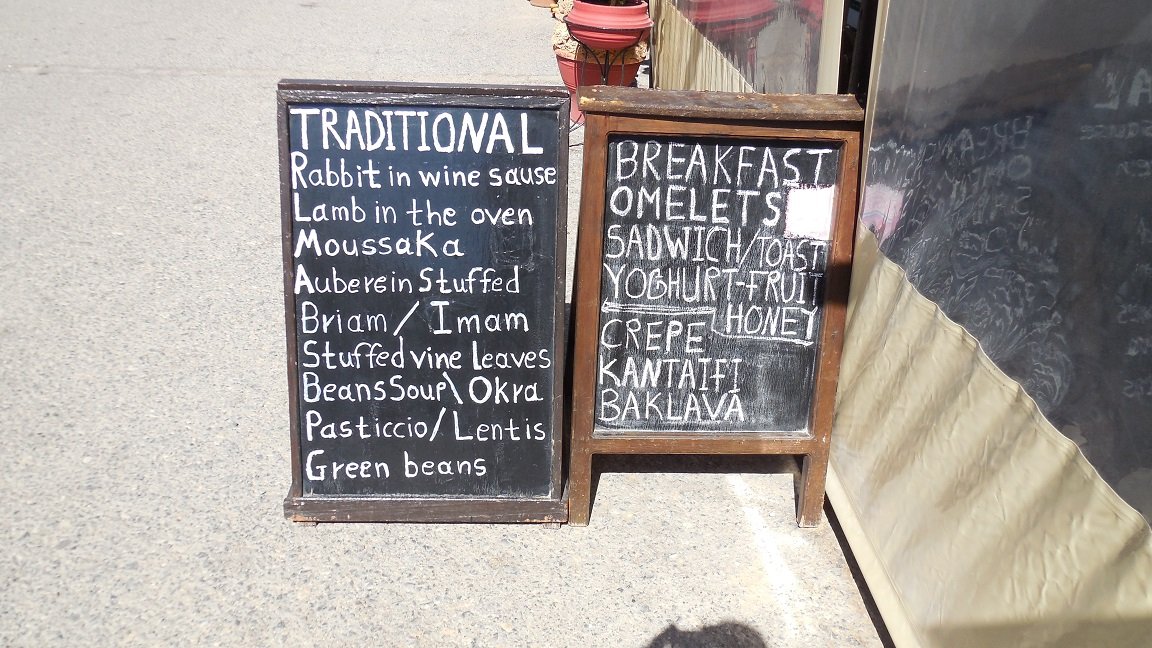 TRADITIONAL
Rabbit in wine sause
Lamb in the oven
Moussaka
Aubergin Stuffed
Briam / Imam
Stuffed vine leaves
Beans Soup \ Okra
Pasticcio / Lentis
Green beans
BREAKFAST
OMELETS
SADWICH/TOAST
YOGHURT-FRUIT
HONEY
CREPE
KANTAIFI
BAKLAVA